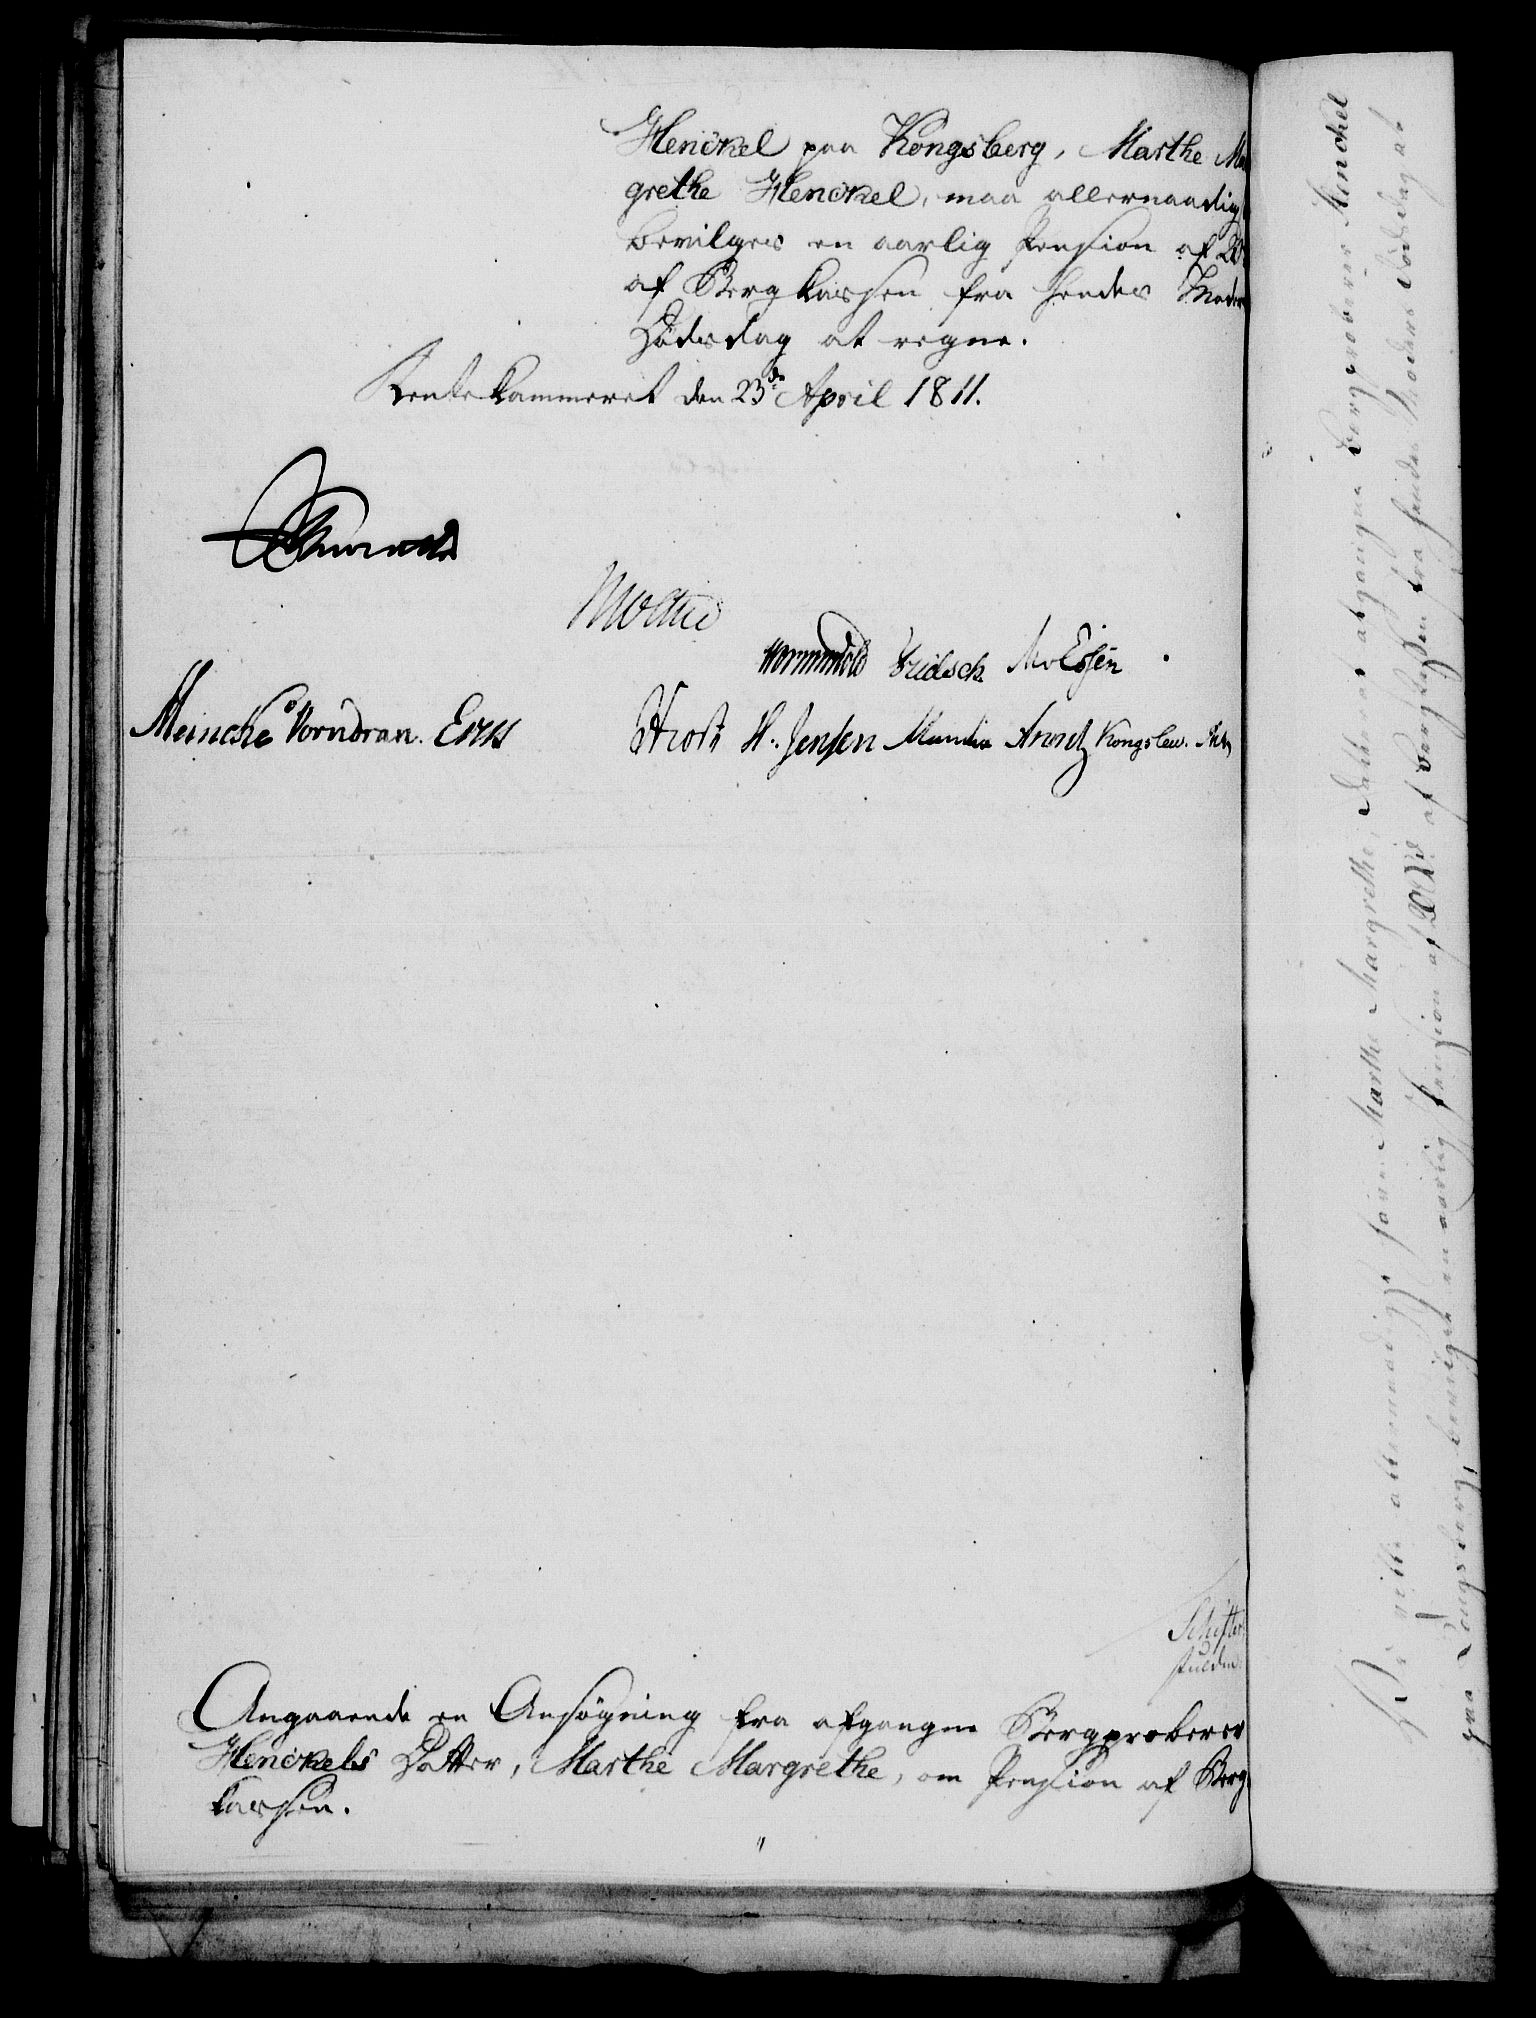 Henckel paa Kongsberg, Marthe Mar
grethe Henckel, maa allernaadigst
bevilges en aarlig Pension af 20
af Bergkassen fra hendes Moders
Dødsdag at regne.
Rentekammeret den 23de April 1811.
Wormskiold Fridsch. M v Essen
Meincke Vorndran.
H. Jensen Munthe Arentz Kongslew.
Angaaende en Ansøgning fra afgangne Bergproberer
Henckels Datter, Marthe Margrethe, om Pension af Berg
kassen.
Vi ville allernaadigst have: Marthe Margrethe, Datter af afgangne Bergproberer Henckel
paa Kongsberg, bevilget en aarlig Pension af 20 Rd af Bergkassen fra hendes Moders Dødsdag at